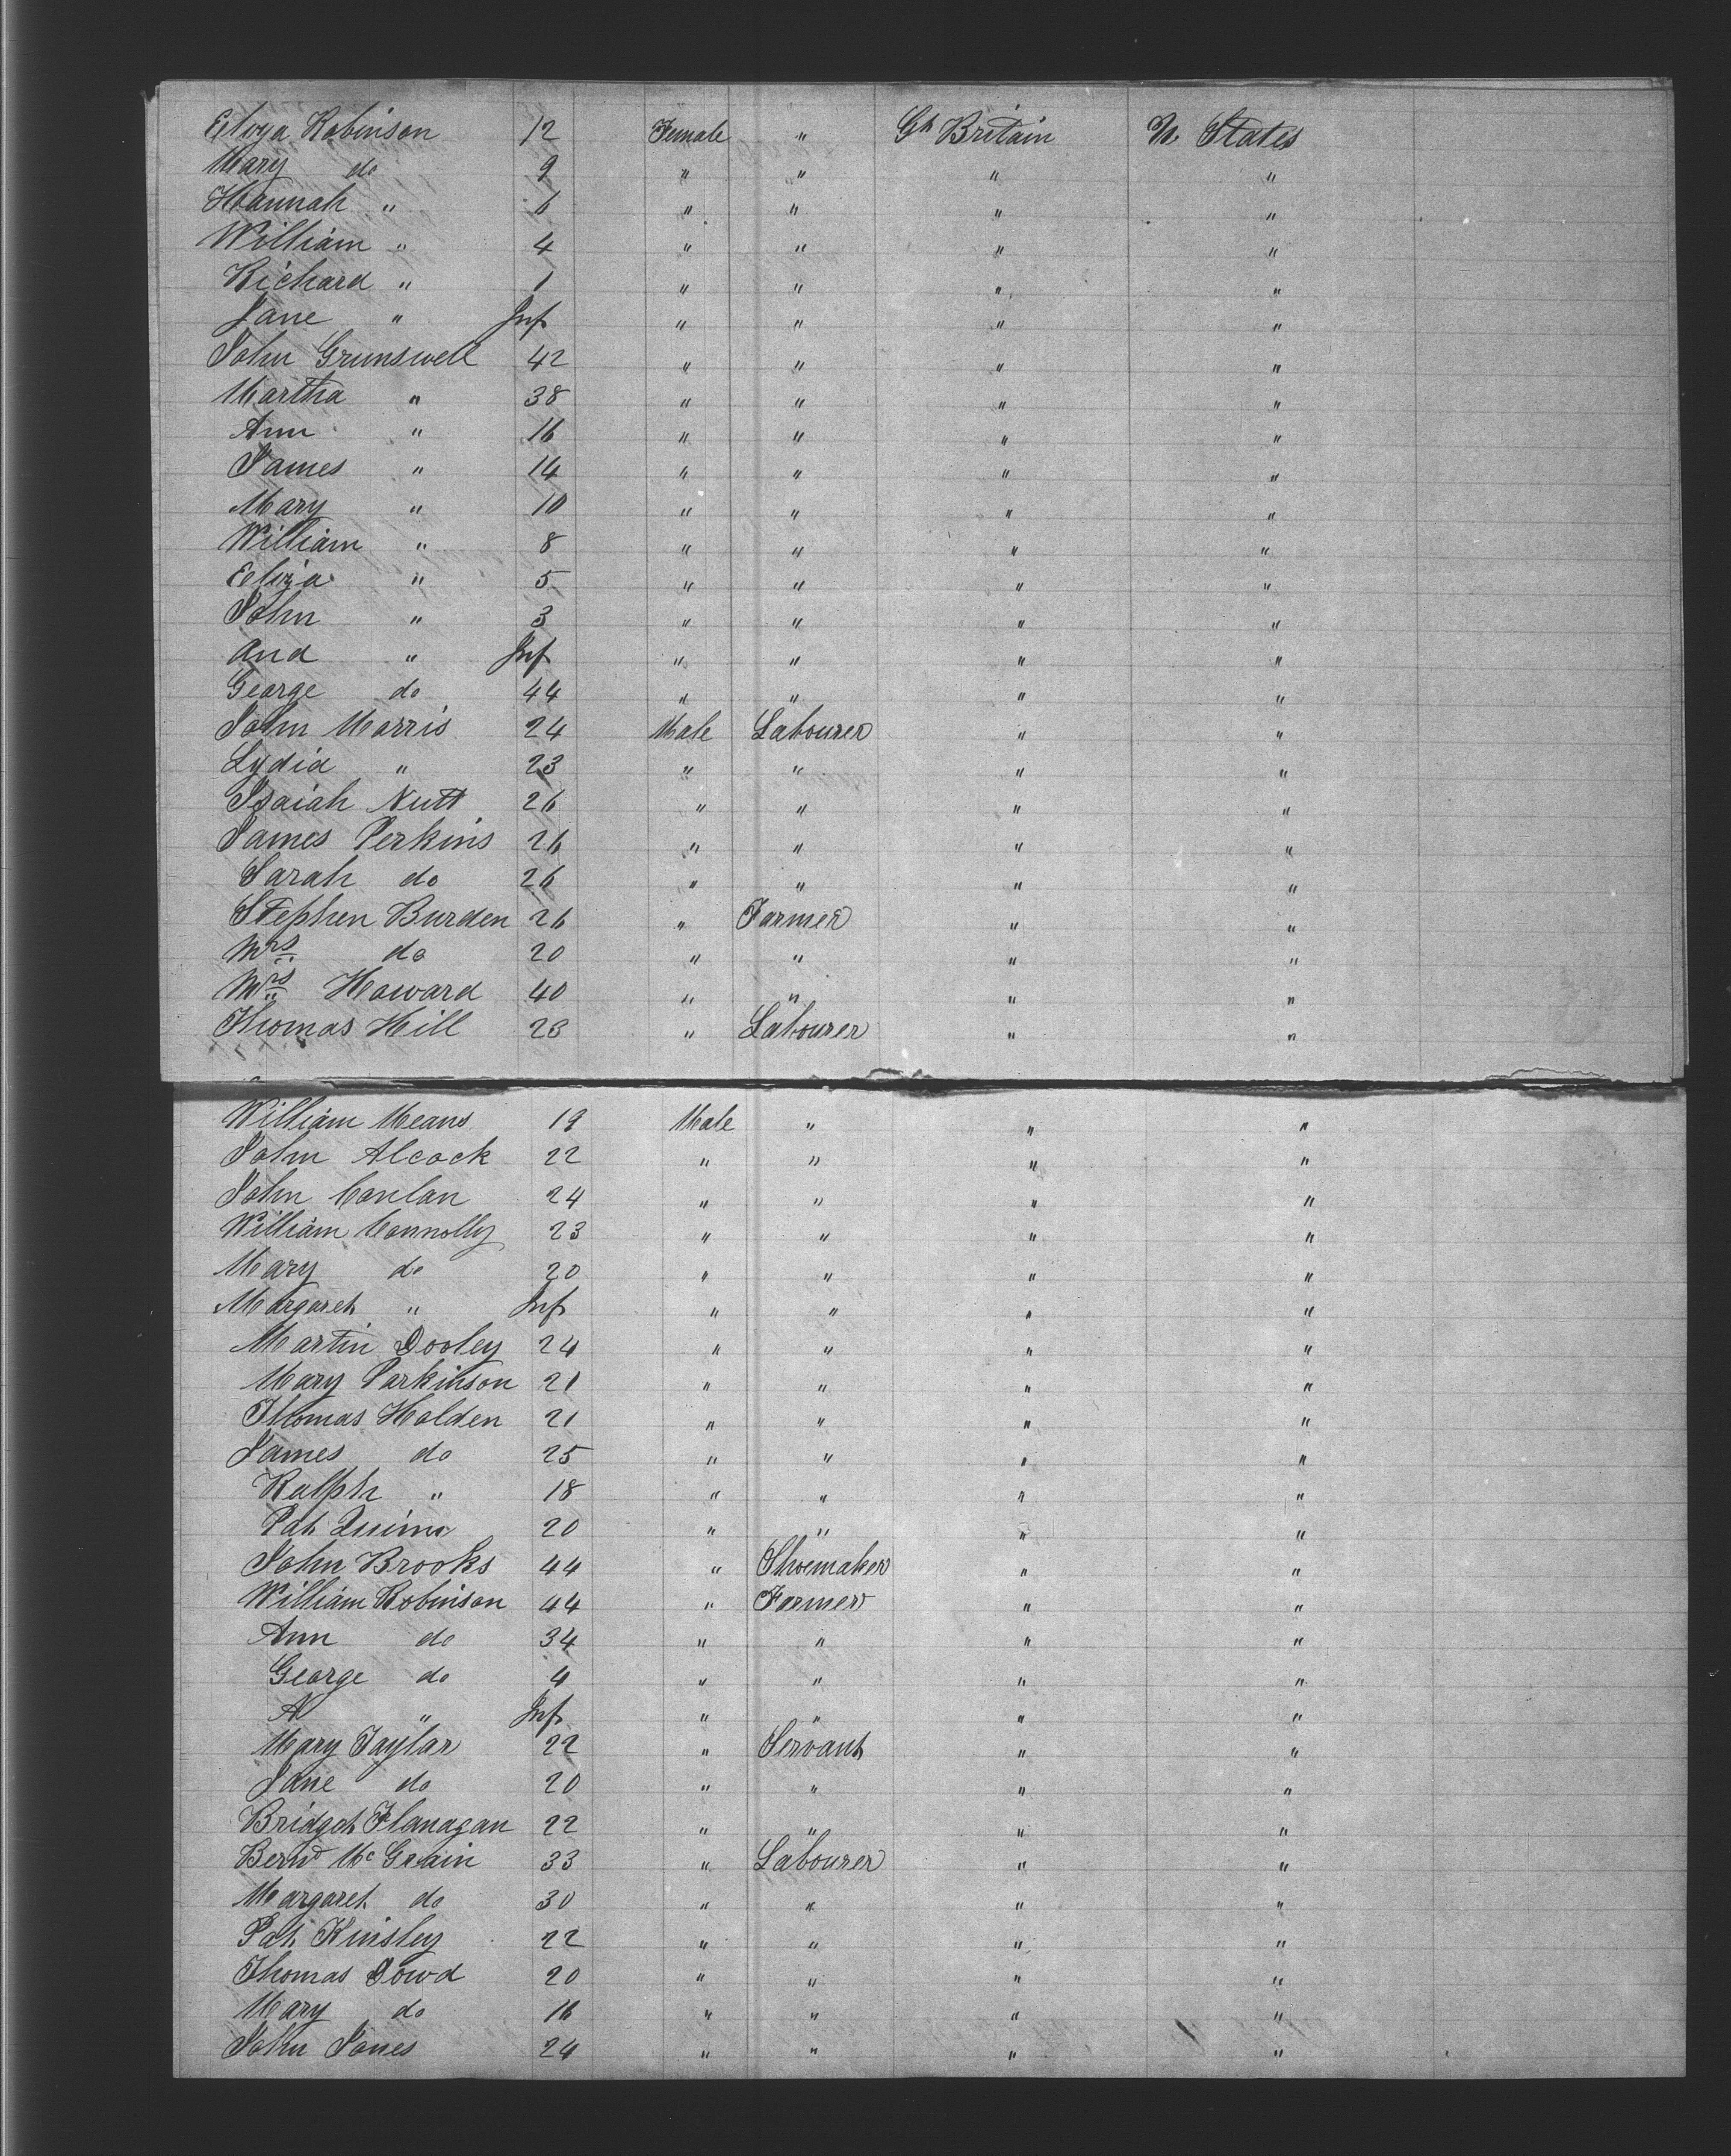 Eliza Robinson 12 Female " Gt Britain U States
Mary do 9 " " " "
Hannah " 6 " " " "
William " 4 " " " "
Richard " 1 " " " "
Jane " Inf " " " "
John Grunswell 42 " " " "
Martha " 38 " " " "
Ann " 16 " " " "
James " 14 " " " "
Mary " 10 " " " "
William " 8 " " " "
Eliza " 5 " " " "
John " 3 " " " "
And " Inf " " " "
George do 44 " " " "
John Morris 24 Male Labourer " "
Lydia " 23 " " " "
Isaiah Nutt 26 " " " "
James Perkins 26 " " " "
Sarah do 26 " " " "
Stephen Burden 26 " Farmer " "
Mrs do 20 " " " "
Mrs Howard 40 " " " "
Thomas Hill 23 " Labourer " "
William Means 19 Male " " "
John Alcock 22 " " " "
John Conlan 24 " " " "
William Connolly 23 " " " "
Mary do 20 " " " "
Margaret " Inf " " " "
Martin Dooley 24 " " " "
Mary Parkinson 21 " " " "
Thomas Holden 21 " " " "
James do 25 " " " "
Ralph " 18 " " " "
Pat Quinn 20 " " " "
John Brooks 44 " Shoemaker " "
William Robinson 44 " Farmer " "
Ann do 34 " " " "
George do 4 " " " "
A " Inf " " " "
Mary Taylor 22 " Servant " "
Jane do 20 " " " "
Bridget Flanagan 22 " " " "
Bernd McGrain 33 " Labourer " "
Margaret do 30 " " " "
Pat Kinsley 22 " " " "
Thomas Dowd 20 " " " "
Mary do 16 " " " "
John Jones 24 " " " "